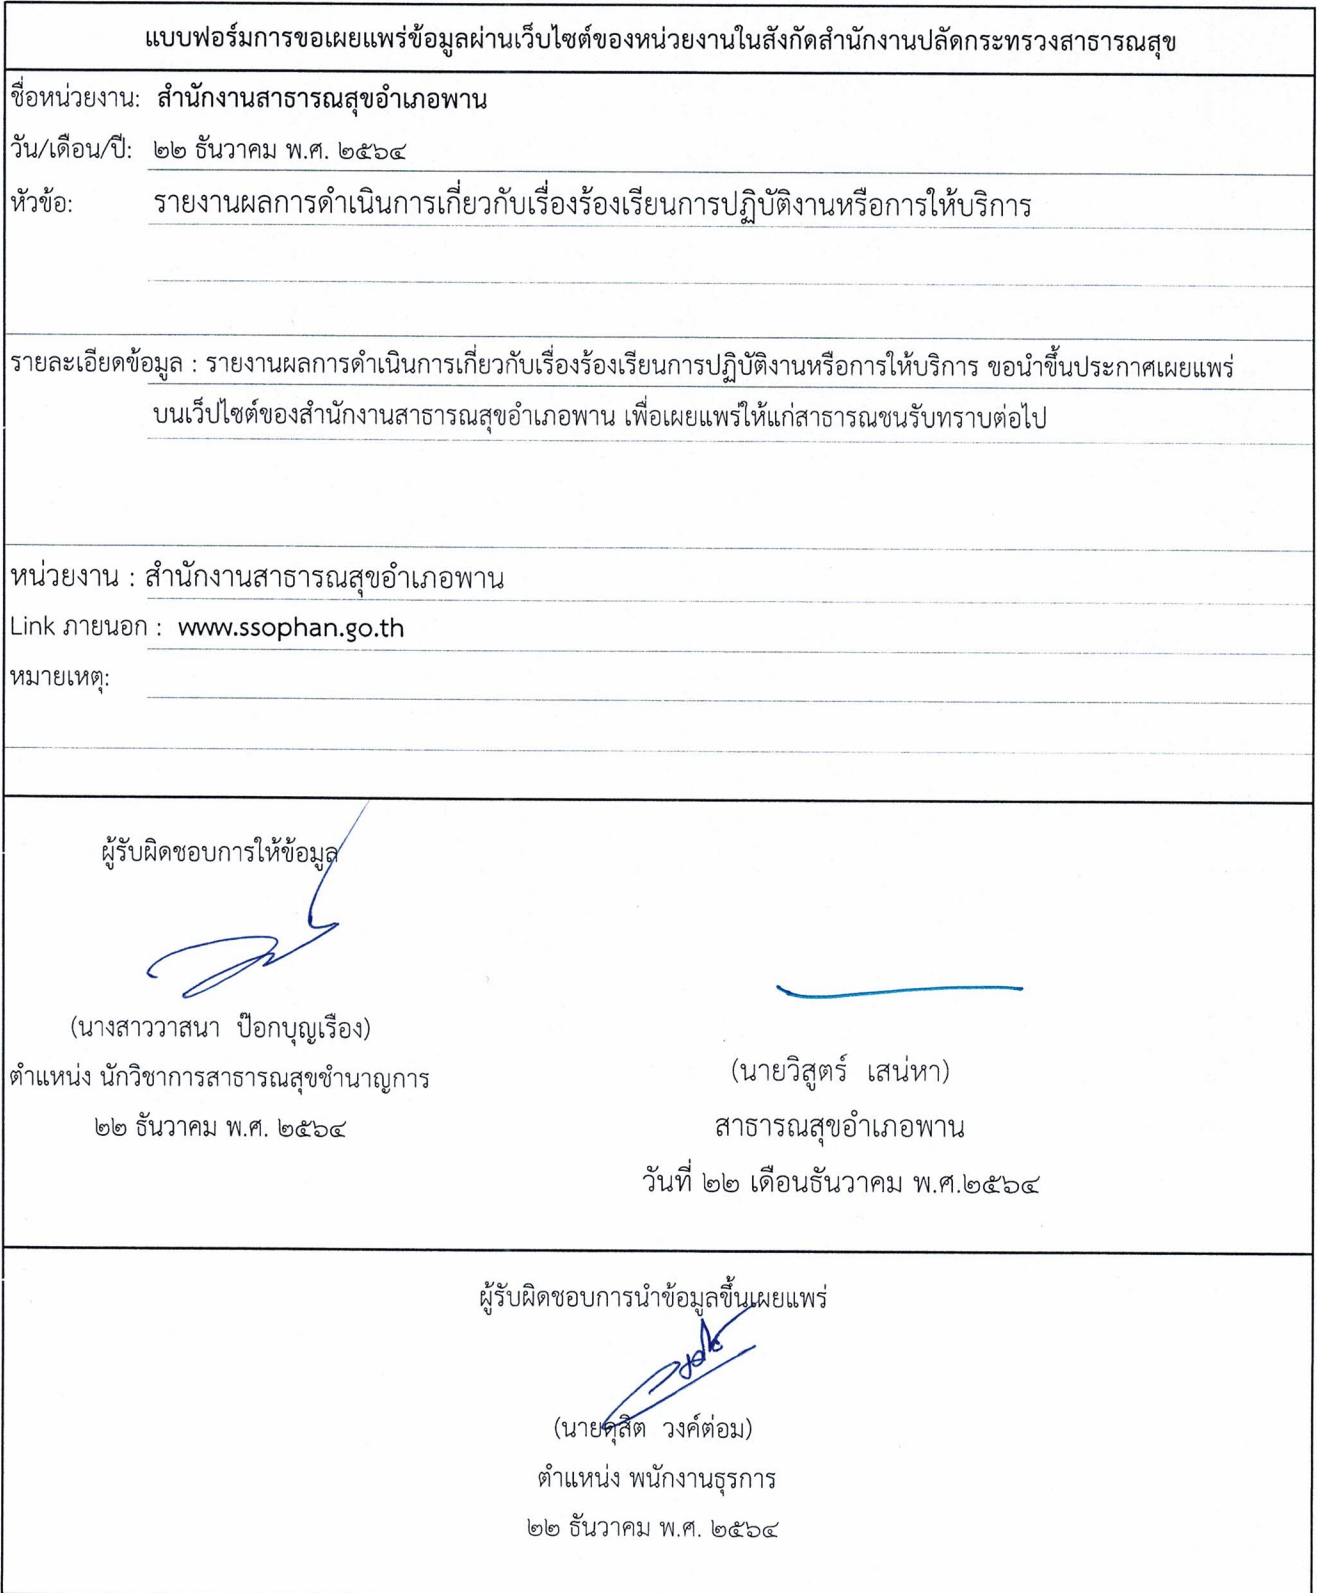 แบบฟอร์มการขอเผยแพร่ข้อมูลผ่านเว็บไซต์ของหน่วยงานในสังกัดสำนักงานปลัดกระทรวงสาธารณสุข
ชื่อหน่วยงาน: สำนักงานสาธารณสุขอำเภอพาน
วัน/เดือน/ปี: ๒๒ ธันวาคม พ.ศ. ๒๕๖๔
หัวข้อ: รายงานผลการดำเนินการเกี่ยวกับเรื่องร้องเรียนการปฏิบัติงานหรือการให้บริการ
รายละเอียดข้อมูล : รายงานผลการดำเนินการเกี่ยวกับเรื่องร้องเรียนการปฏิบัติงานหรือการให้บริการ ขอนำขึ้นประกาศเผยแพร่
บนเว็ปไซต์ของสำนักงานสาธารณสุขอำเภอพาน เพื่อเผยแพร่ให้แก่สาธารณชนรับทราบต่อไป
หน่วยงาน : สำนักงานสาธารณสุขอำเภอพาน
Link ภายนอก : www.ssophan.go.th
หมายเหตุ:
ผู้รับผิดชอบการให้ข้อมูล
(นางสาววาสนา ป๊อกบุญเรือง)
ตำแหน่ง นักวิชาการสาธารณสุขชำนาญการ
๒๒ ธันวาคม พ.ศ. ๒๕๖๔
(นายวิสูตร์ เสน่หา)
สาธารณสุขอำเภอพาน
วันที่ ๒๒ เดือนธันวาคม พ.ศ.๒๕๖๔
ผู้รับผิดชอบการนำข้อมูลขึ้นเผยแพร่
(นายดุสิต วงค์ต่อม)
ตำแหน่ง พนักงานธุรการ
๒๒ ธันวาคม พ.ศ. ๒๕๖๔